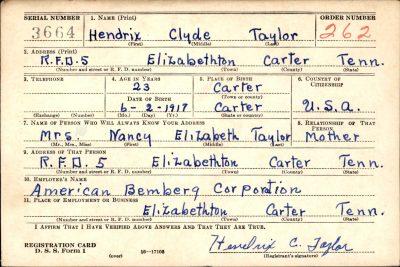 SERIAL NUMBER 1. NAME (Print) ORDER NUMBER
3664 Hendrix Clyde Taylor 262
(First) (Middle) (Last)
2. ADDRESS (Print)
R.F.D.5 Elizabethton Carter Tenn.
(Number and street or R. F. D. number) (Town) (County) (State)
3. TELEPHONE 4. AGE IN YEARS 5. PLACE OF BIRTH 6. COUNTRY OF CITIZENSHIP
23 Carter
DATE OF BIRTH (Town or county)
6-2-1917 Carter U.S.A.
(Exchange) (Number) (Mo.) (Day) (Yr.) (State or country)
7. NAME OF PERSON WHO WILL ALWAYS KNOW YOUR ADDRESS 8. RELATIONSHIP OF THAT PERSON
Mrs. Nancy Elizabeth Taylor Mother
(Mr., Mrs., Miss) (First) (Middle) (Last)
9. ADDRESS OF THAT PERSON
R.F.D. 5 Elizabethton Carter Tenn.
(Number and street or R. F. D. number) (Town) (County) (State)
10. EMPLOYER'S NAME
American Bemberg Corportion
11. PLACE OF EMPLOYMENT OR BUSINESS
Elizabethton Carter Tenn.
(Number and street or R. F. D. number) (Town) (County) (State)
I AFFIRM THAT I HAVE VERIFIED ABOVE ANSWERS AND THAT THEY ARE TRUE.
REGISTRATION CARD
D. S. S. Form 1 (over) 16-17105 Hendrix C. Taylor
(Registrant's signature)